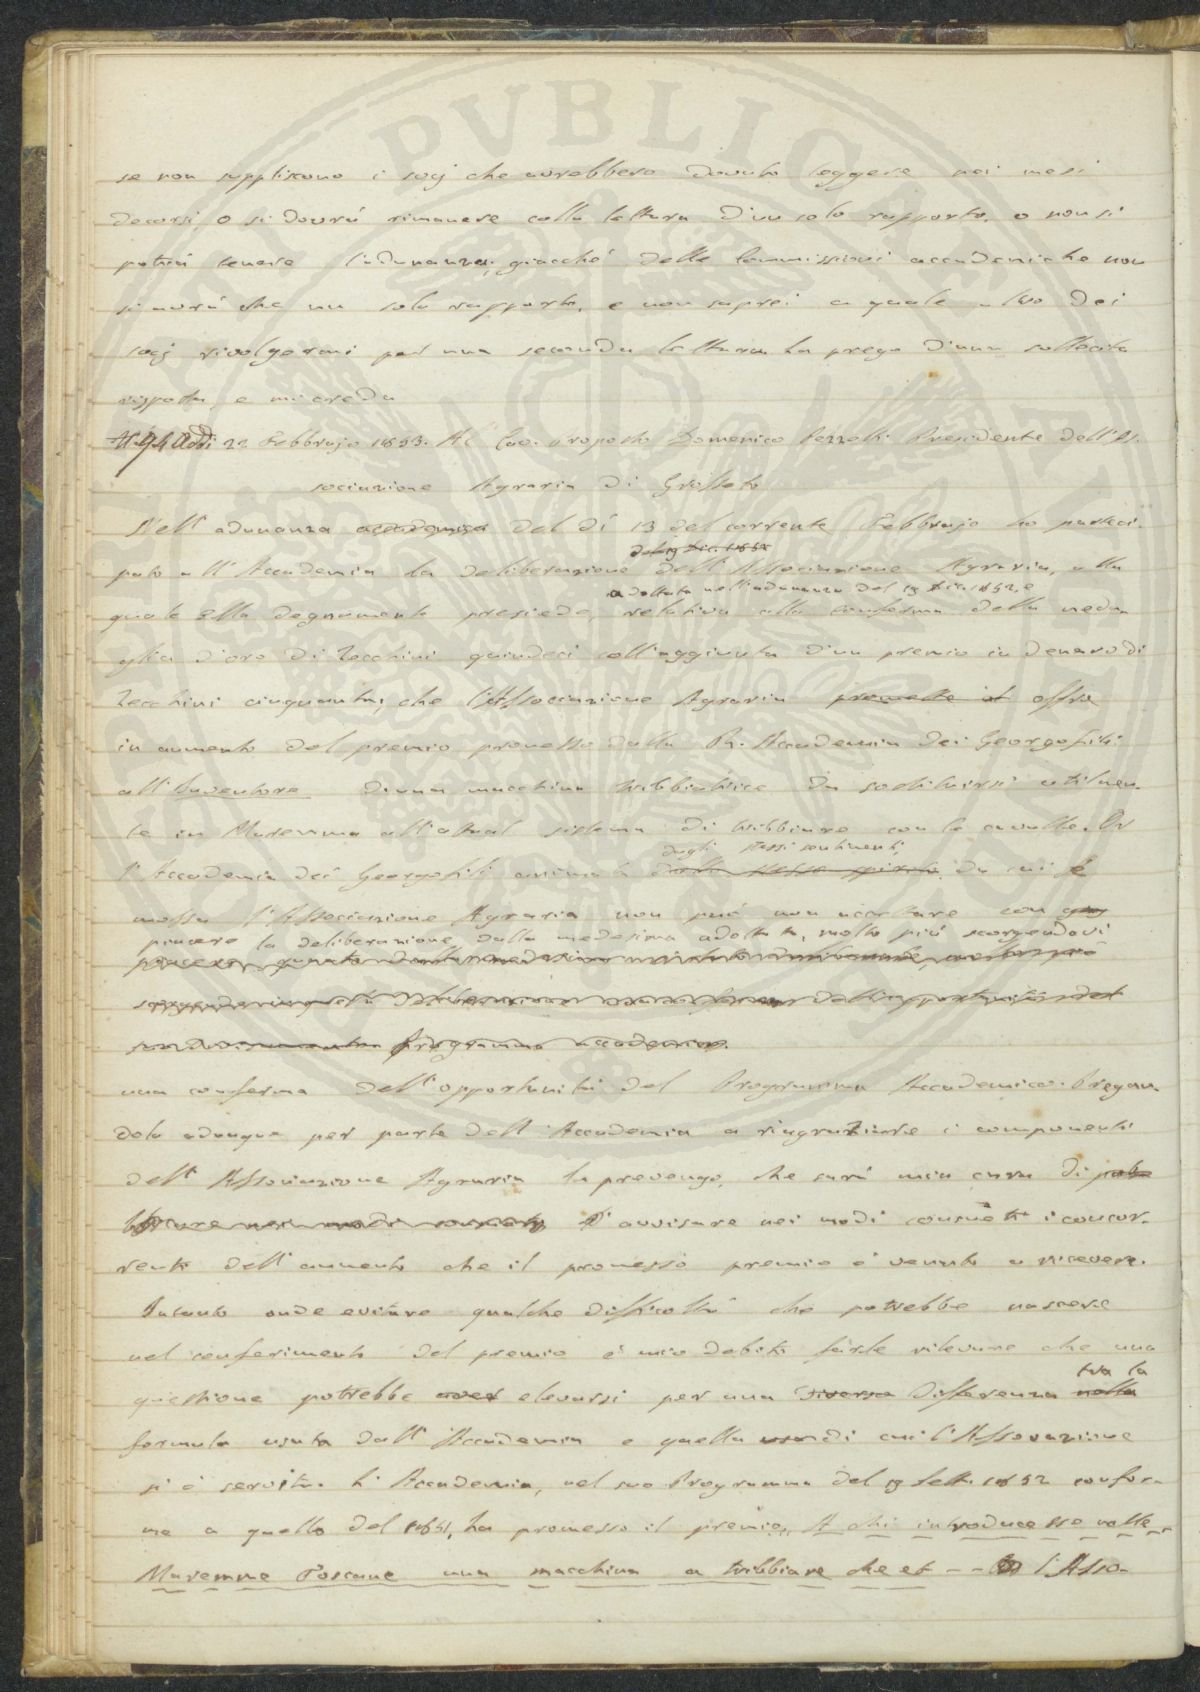 se non suppliscono i socj che avrebbero dovuto leggere nei mesi
decorsi, o si dovrà rimanere colla lettura d'un solo rapporto, o non si
potrà tenere l'adunanza; giacchè delle Commissioni accademiche non
si avrà che un solo rapporto, e non saprei a quale altro dei
socj rivolgermi per una seconda lettura. La prego d'una sollecita
risposta, e mi creda
Addi 22 Febbrajo 1853. Al Cav. Proposto Domenico Pizzetti Presidente dell'As-
sociazione Agraria di Grosseto
Nell'adunanza accademica del dì 13 del corrente Febbrajo ho parteci
del 19 Dic. 1852
pato all'Accademia la deliberazione dell'Associazione Agraria, alla
adottata nell'adunanza del 19 Dic. 1852, e
quale Ella degnamente presiede, relativa alla conferma della meda
glia d'oro di Zecchini quindici coll'aggiunta d'un premio in denaro di
Zecchini cinquanta, che l'Associazione Agraria promette offra
in aumento del premio promesso dalla R. Accademia dei Georgofili
all'Inventore d'una macchina tribbiatrice da sostituirsi utilmen-
te in Maremma all'attual sistema di tribbiare con le cavalle. Or
dagli stessi sentimenti
l'Accademia dei Georgofili animata dallo stesso spirito da cui è
mossa l'Associazione Agraria non può non accettare con
piacere la deliberazione dalla medesima adottata, molto più scorgendovi
piacere, quanto dalla medesima
dell'opportunità del
Programma accademico.
una conferma dell'opportunità del Programma Accademico. Pregan-
dola adunque per parte dell'Accademia a ringraziare i componenti
dell'Associazione Agraria la prevengo, che sarà mia cura di pub
blicare nei modi d'avvisare nei modi consueti i concor-
renti dell'aumento che il promesso premio è venuto a ricevere.
Intanto onde evitare qualche difficoltà che potrebbe nascere
nel conferimento del premio è mio debito farle rilevare che una
tra la
questione potrebbe aver elevarsi per una diversa differenza nella
formula usata dall'Accademia e quella di cui l'Associazione
si è servita. L'Accademia, nel suo Programma del 19 Sett. 1852 confor-
me a quello del 1851, ha promesso il premio, A chi introducesse nelle
Maremme Toscane una macchina a tribbiare che et - - l'Asso-